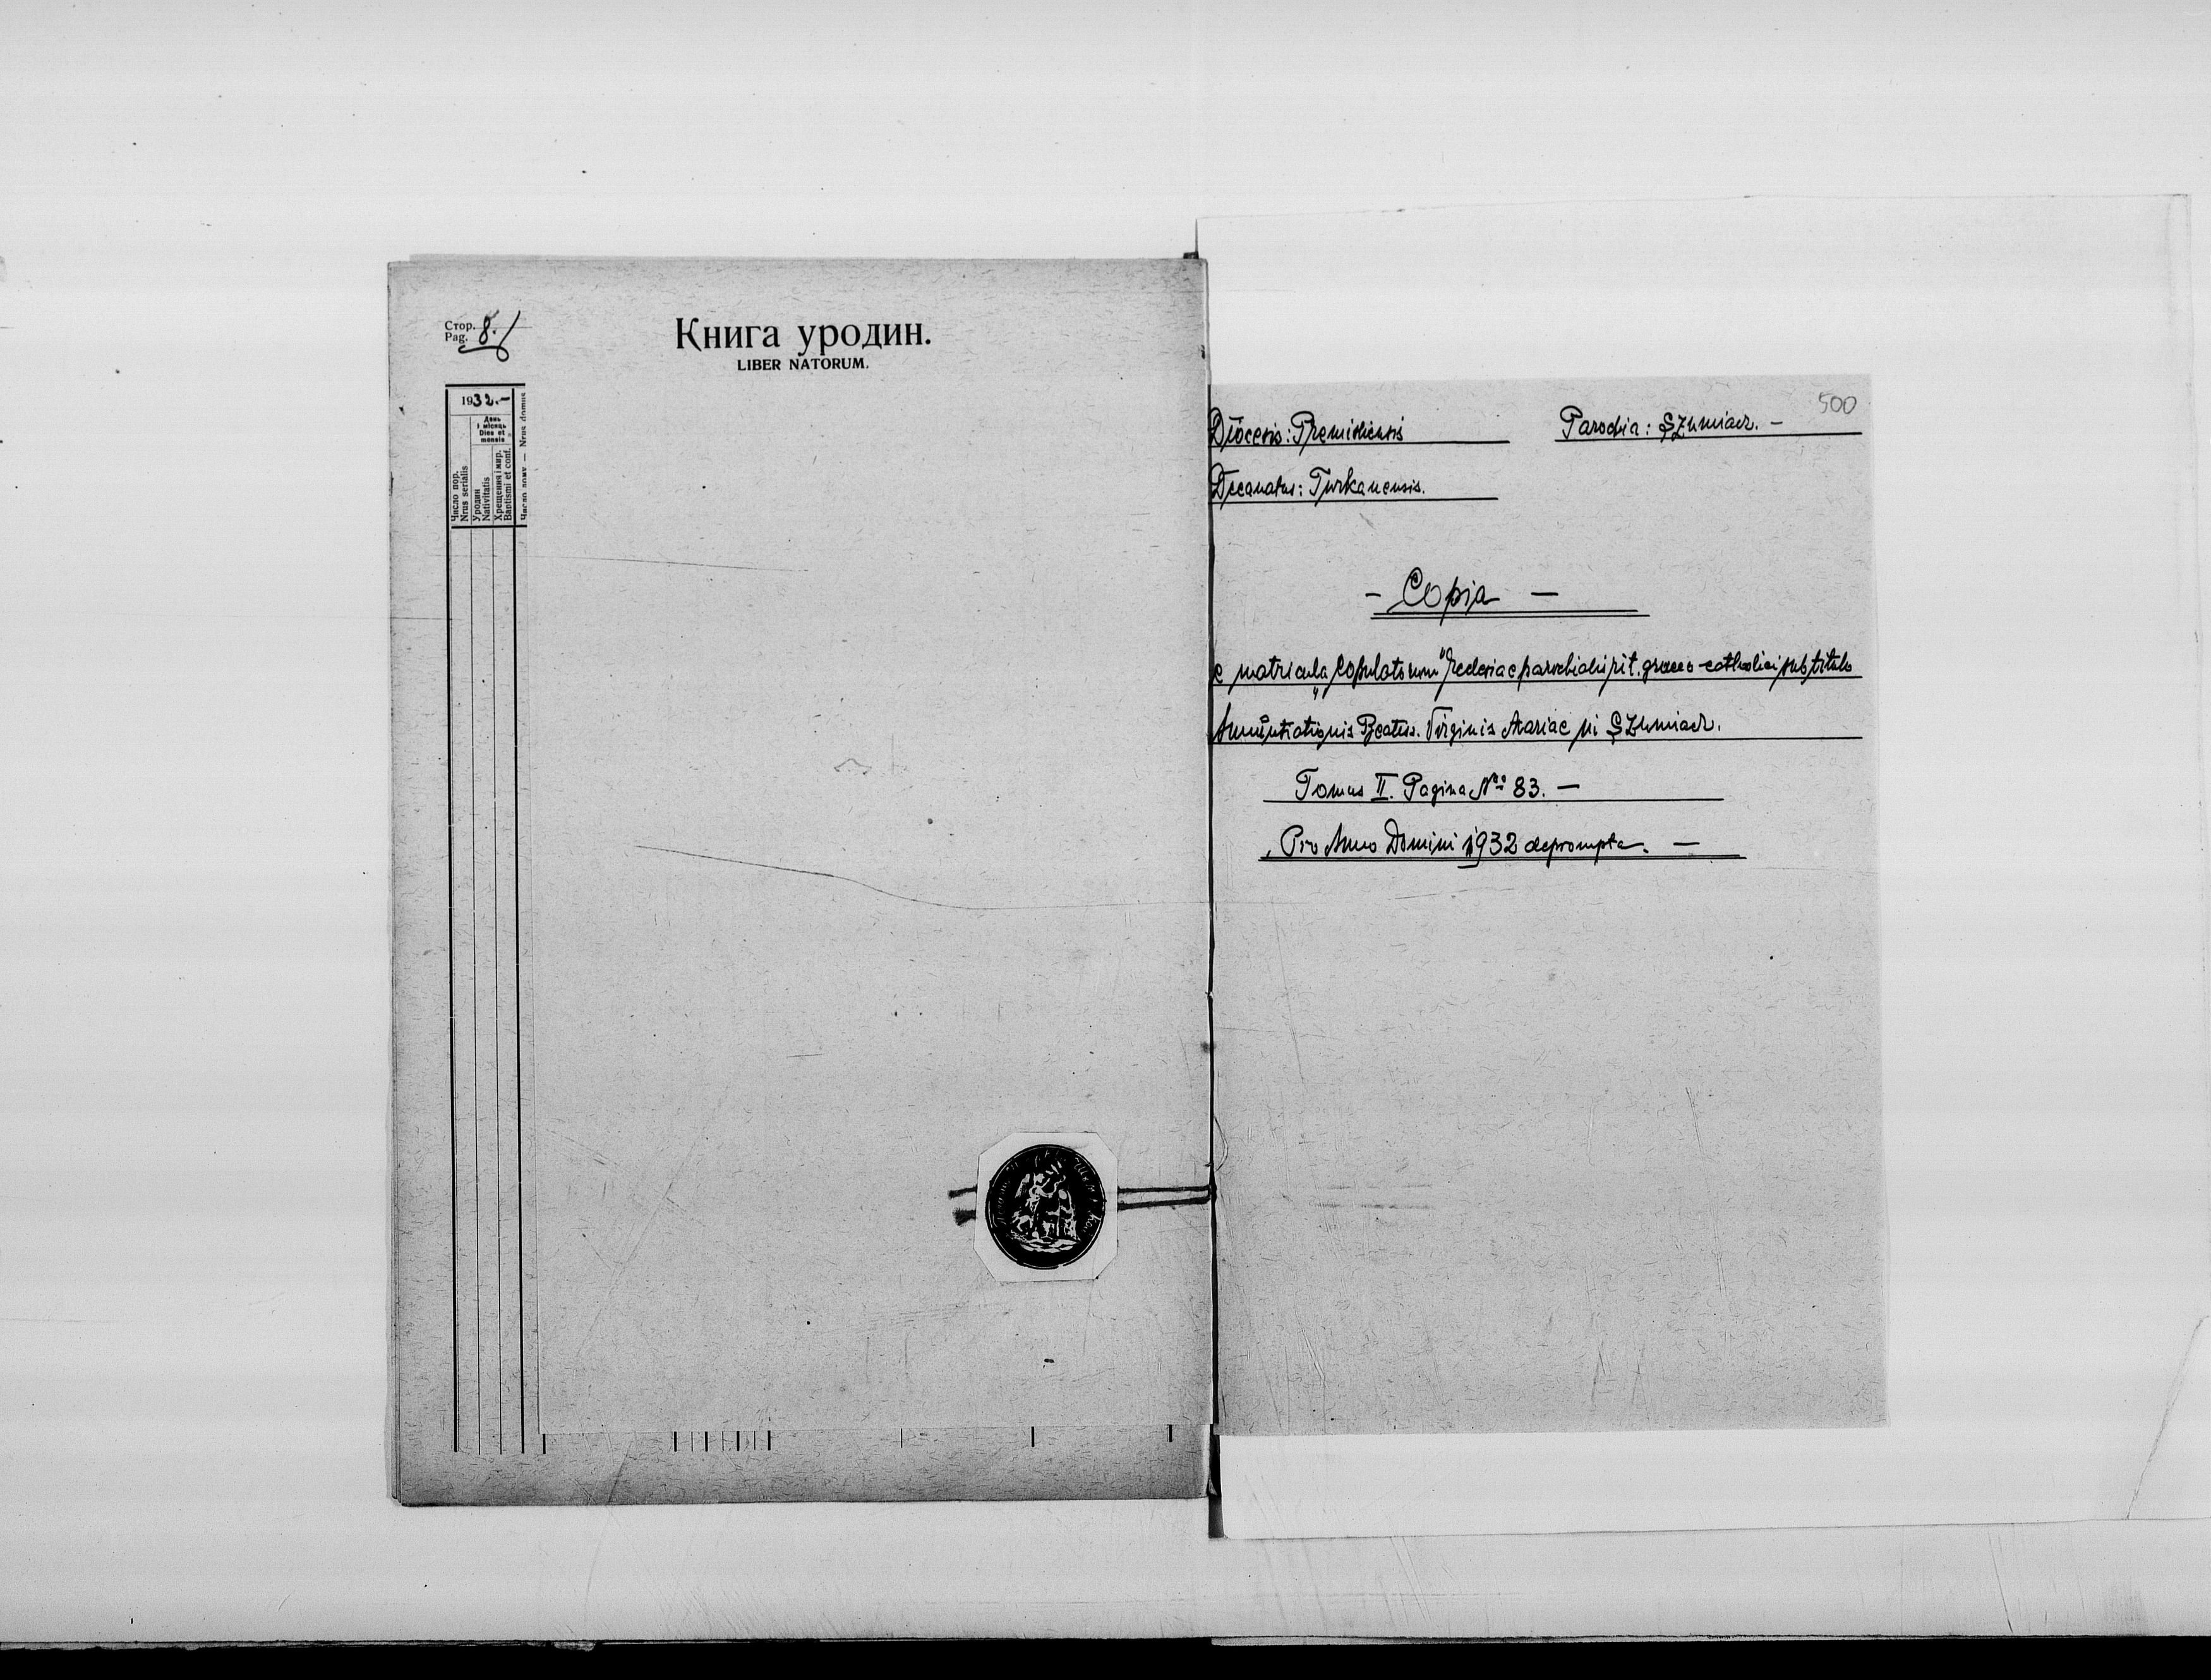 Стор.
Pag. 8.
Книга уродин.
LIBER NATORUM.
1932.-
День
і місяць
Dies et
mensis
Число пор.
Nrus serialis
Уродин
Nativitatis
Хрещення і мир.
Baptismi et conf.
Число дому — Nrus domus
500
Diöcesis: Premisliensis Parochia: Szumiacz. -
Decanatus: Turkanensis.
- Copia -
e matricula „Copulatorum" Ecclesiae parochialis rit. graeco-catholici sub titulo
Annuntiationis Beatiss. Virginis Mariae in Szumiacz.
Tomus II. Pagina No: 83. -
Pro Anno Domini 1932 deprompta. -